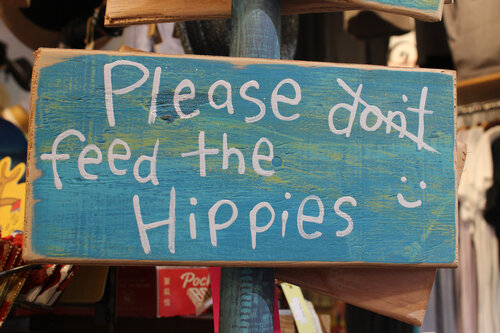 Please don't
feed the
Hippies :)
Pock